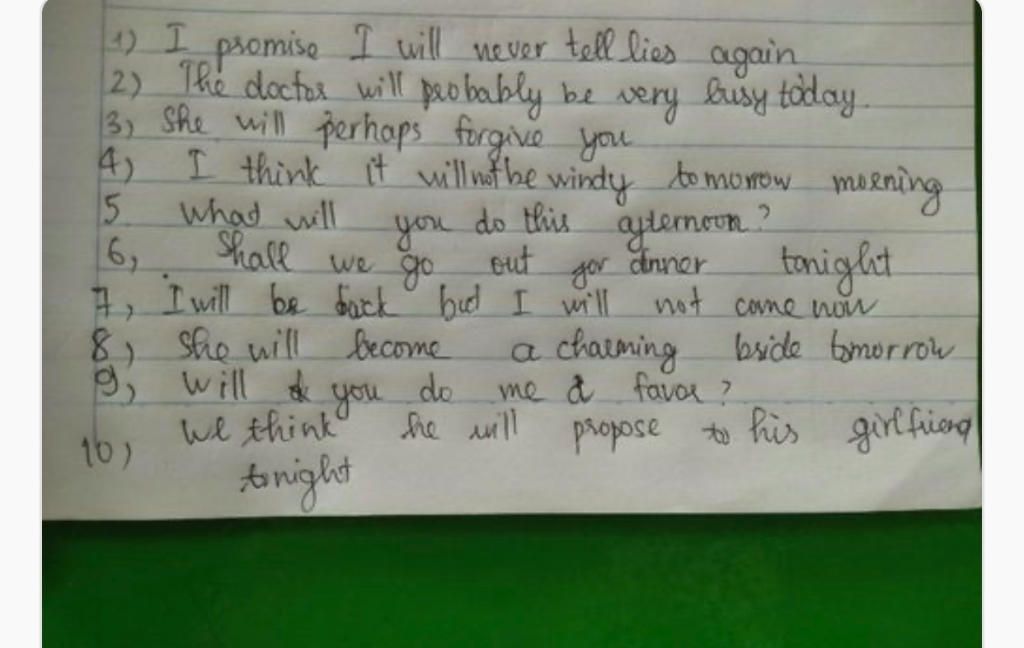 1) I promise I will never tell lies again
2) The doctor will probably be very busy today.
3, She will perhaps forgive you
4) I think it will not be windy tomorrow morning
5. What will you do this afternoon?
6, Shall we go out for dinner tonight
7, I will be back but I will not come now
8, She will become a charming bride tomorrow
9, Will you do me a favor?
10, We think he will propose to his girlfriend
tonight